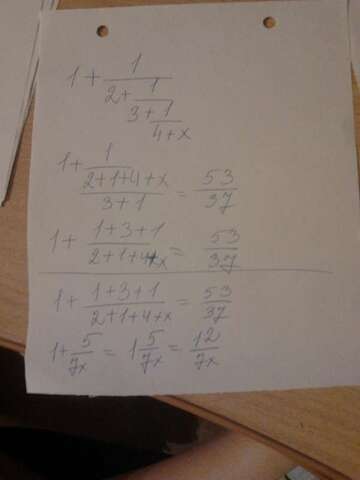 1 + 1/(2 + 1/(3 + 1/(4 + x)))
1 + 1/((2 + 1 + 4 + x)/(3 + 1)) = 53/37
1 + (1 + 3 + 1)/(2 + 1 + 4 + x) = 53/37
1 + (1 + 3 + 1)/(2 + 1 + 4 + x) = 53/37
1 + 5/7x = 1 5/7x = 12/7x